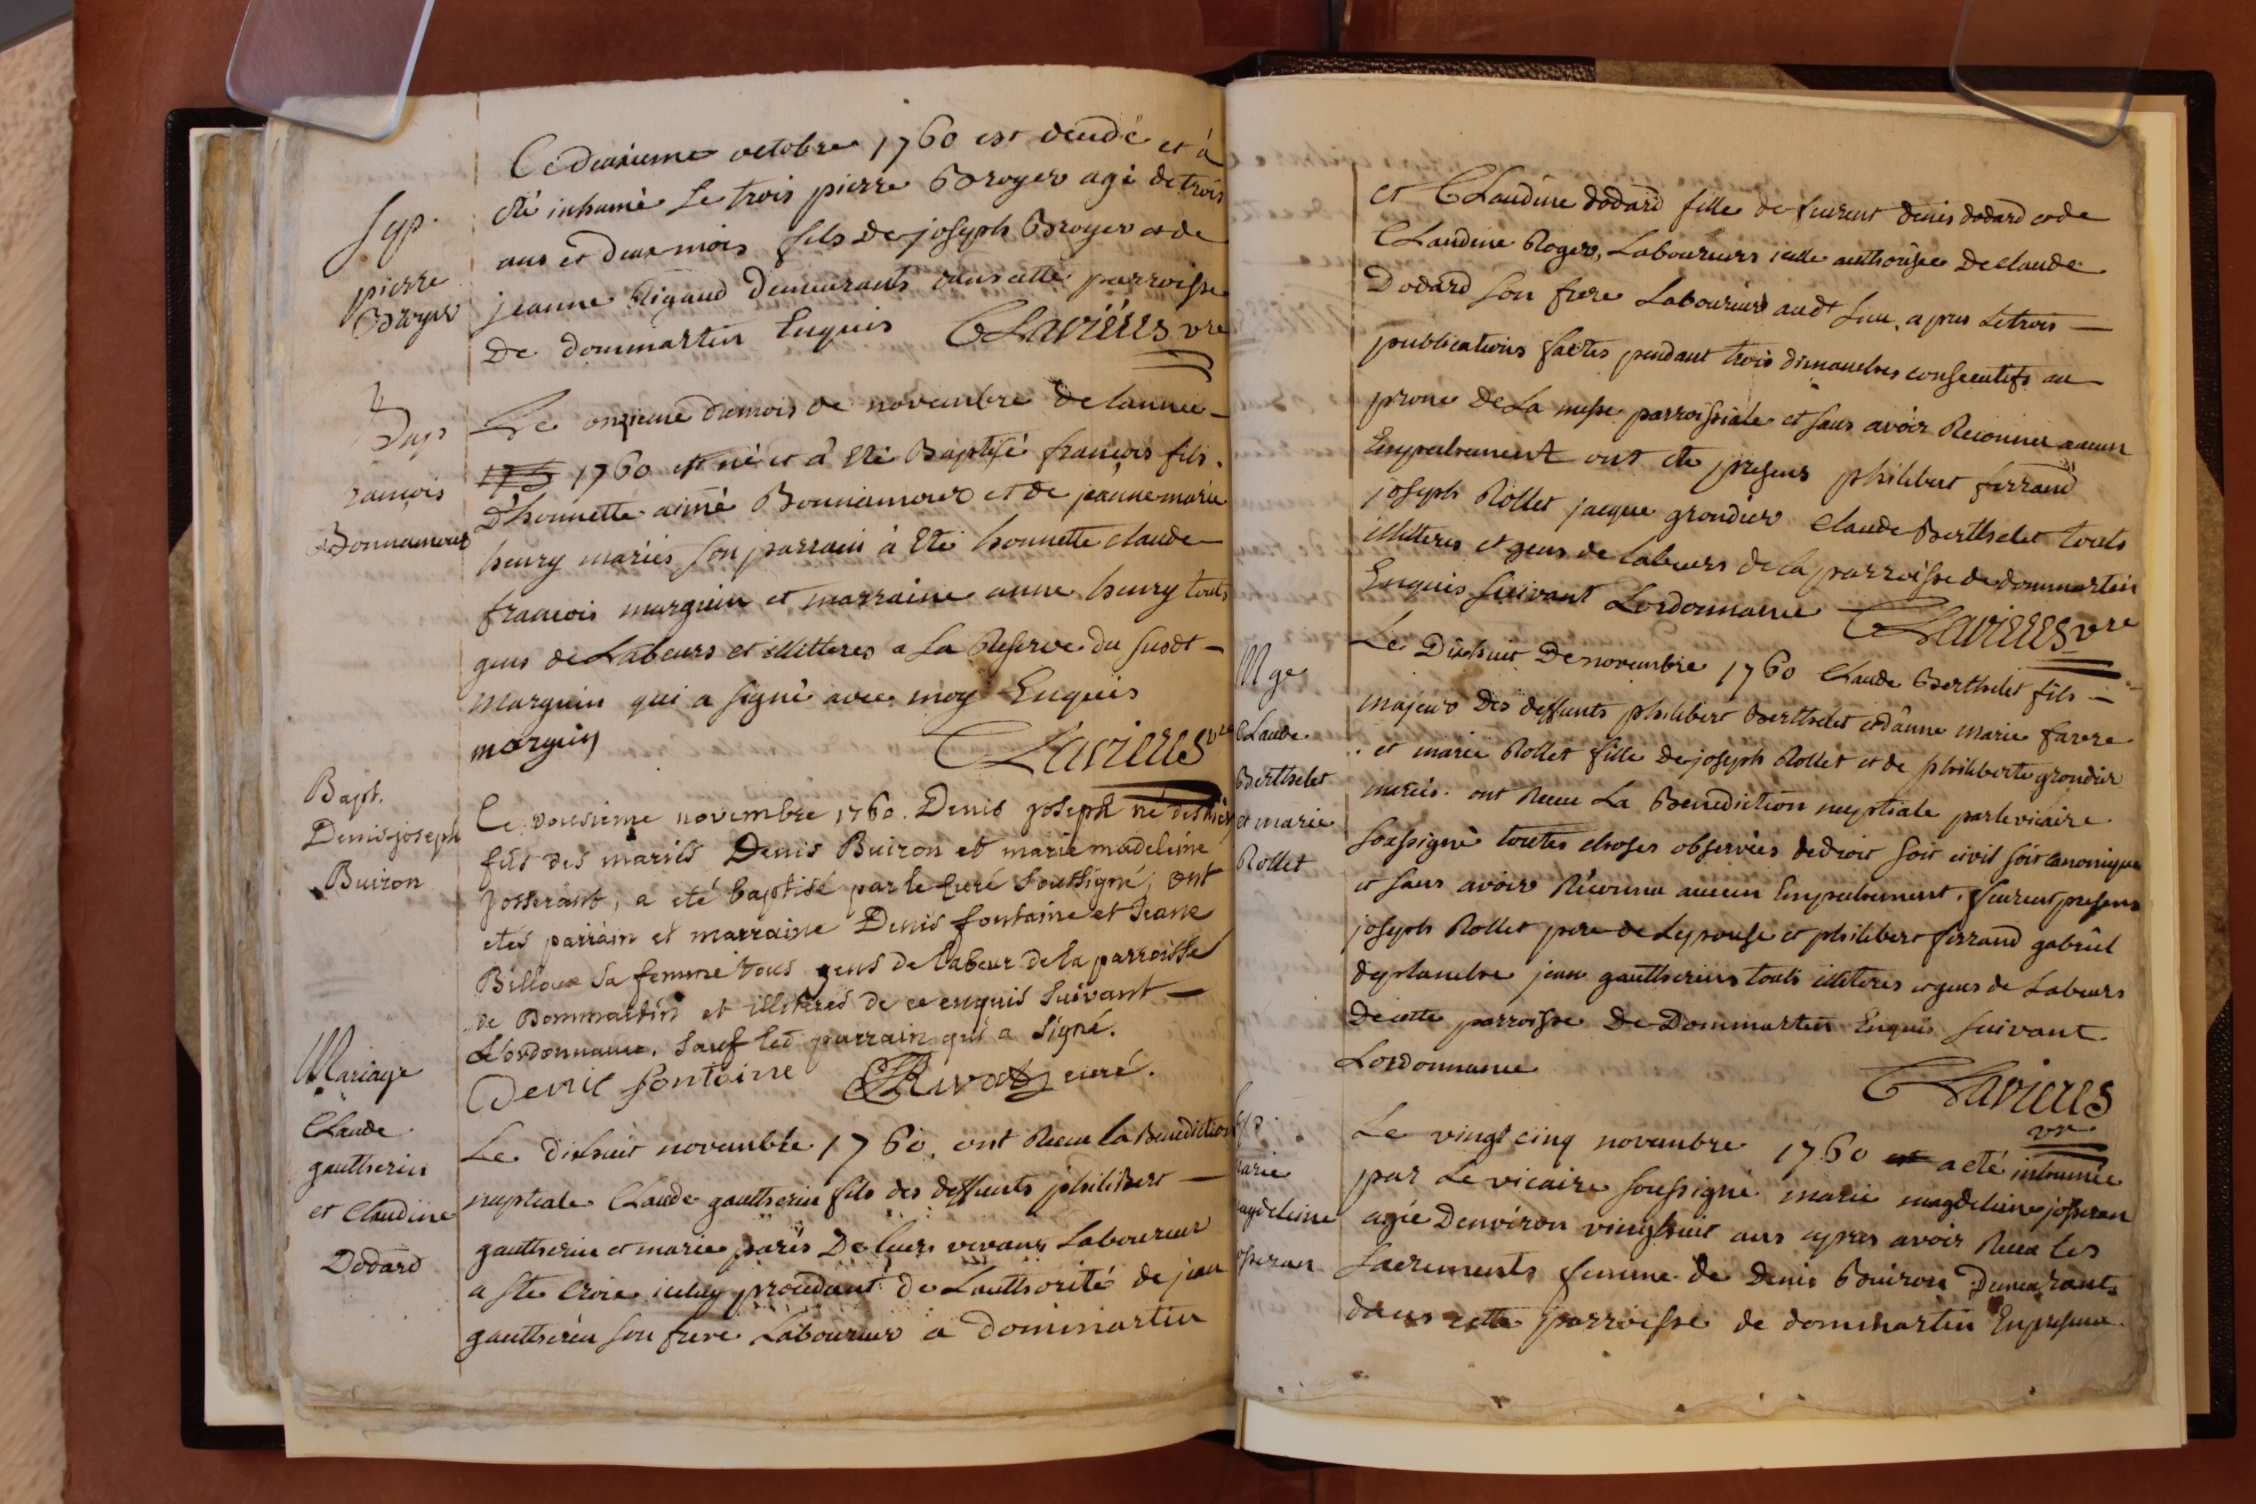 Sep.
pierre
Broyer
Ce deuxieme octobre 1760 est decedé et à
été inhumé Le trois pierre Broyer agé de trois
ans et deux mois fils De joseph Broyer et de
jeanne Rigaud demeurants dans cette parroisse
De dommartin Enquis CLavieres vre
Bap
rançois
Bonnamour
Le onzieme du mois de novembre de lannée
1760 est né et à Eté Baptisé françois fils
D'honnette aimé Bonnamour et de jeanne marie
henry mariés son parrain à Eté honnette claude
francois marguin et marraine anne henry touts
gens de Labeurs et illitteres a La Reserve du susdt
marguin qui a signé avec moy Enquis
marguin CLavieres vre
Bapt.
Denis joseph
Buiron
Le dousieme novembre 1760. Denis joseph né des hier
fils des mariés Denis Buiron et marie madeleine
Josserant, a eté baptisé par le Curé soussigné; ont
etés parrain et marraine Denis fontaine et Jeane
Billoux sa femme tous gens de labeur de la parroisse
de Dommartin et illiteres de ce enquis suivant
L'ordonnance. sauf led parrain qui a signé.
Denis fontaine curé.
Mariage
CLaude
gautherin
et Claudine
Dodard
Le dixhuit novembre 1760. ont Receu la Benediction
nuptiale CLaude gautherin fils des deffunts philibert
gautherin et marie paris De leurs vivans Laboureur
a Ste Croix iceluy procedant de Lauthorité de jean
gautherin son frere Laboureur a dommartin
et CLaudine dodard fille de furent denis dodard et de
CLaudine Roger, Laboureurs icelle authorisée De claude
Dodard son frere Laboureur audt Lieu, apres Letrois
publications faittes pendant trois dimanches consecutifs au
prone de La messe parroissiale et sans avoir Reconnu aucun
Empechement ont ete presens philibert ferrand
joseph Rollet jacque grondier Claude Berthelet touts
illitteres et gens de Labeurs de la parroisse de dommartin
Enquis suivant Lordonnance CLavieres vre
Mge
CLaude
Berthelet
et marie
Rollet
Le Dixhuit De novembre 1760 Claude Berthelet fils
majeur Des deffunts philibert Berthelet et d'anne marie favre
et marie Rollet fille de joseph Rollet et de philiberte grondier
mariés. ont Receu La Benediction nuptiale par le vicaire
soussigné toutes choses observées de droit soit civil soit canonique
et sans avoir Réconnu aucun Empechement. furent presens
joseph Rollet pere de Lepouse et philibert ferrand gabriel
deplanche jean gautherins touts illiteres et gens de Labeurs
De cette parroisse De Dommartin Enquis suivant
Lordonnance
CLavieres
vre
arie
agdeleine
osseran
Le vingt cinq novembre 1760 a eté inhumée
par Le vicaire soussigné marie magdeleine josseran
agée Denviron vingthuit ans apres avoir Receu les
sacrements femme de Denis Buiron Demeurants
dans cette parroisse de dommartin En presence